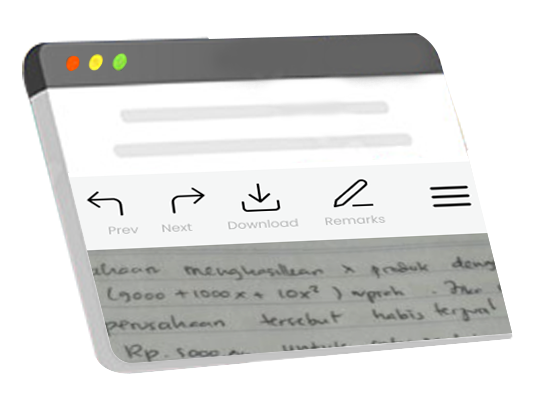 Prev Next Download Remarks
menghasilkan x produk
(9000 + 1000x + 10x²) rupiah. Jika
perusahaan tersebut habis terjual
Rp. 5000 untuk